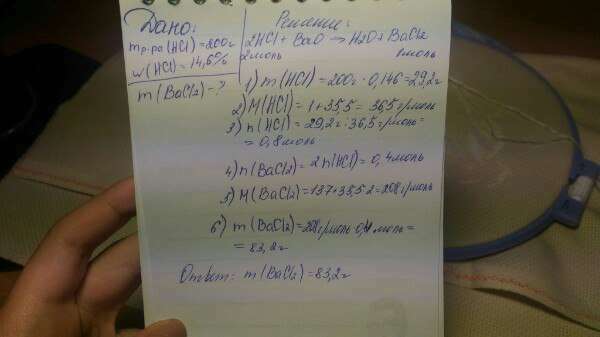 Дано:
mр-ра (HCl) = 200г
w(HCl) = 14,6%
m(BaCl2) - ?
Решение:
2HCl + BaO → H2O + BaCl2
2моль 1моль
1) m(HCl) = 200г · 0,146 = 29,2г
2) M(HCl) = 1 + 35,5 = 36,5 г/моль
3) n(HCl) = 29,2г : 36,5 г/моль =
= 0,8моль
4) n(BaCl2) = 2n(HCl) = 0,4моль
5) M(BaCl2) = 137 + 35,5·2 = 208г/моль
6) m(BaCl2) = 208г/моль · 0,4 моль =
= 83,2г
Ответ: m(BaCl2) = 83,2г